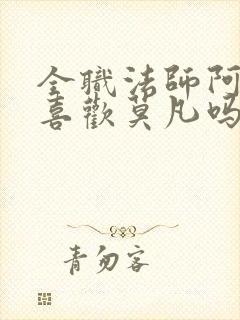 全職法師阿
喜歡莫凡吗
青勿客